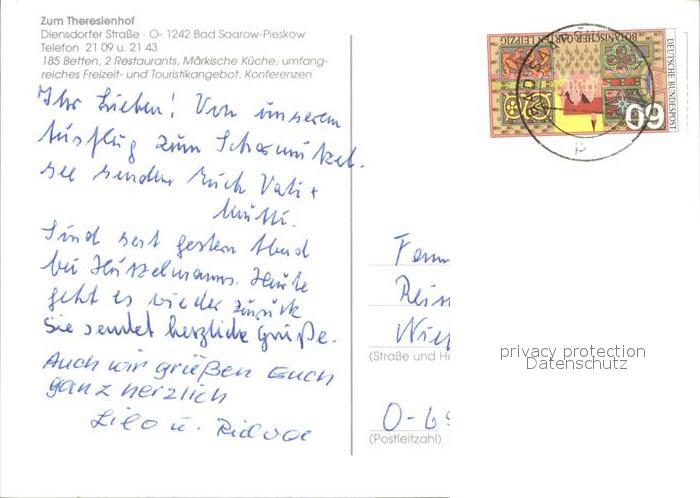 Zum Theresienhof
Diensdorfer Straße · O- 1242 Bad Saarow-Pieskow
Telefon 21 09 u. 21 43
185 Betten, 2 Restaurants, Märkische Küche, umfang-
reiches Freizeit- und Touristikangebot, Konferenzen
Ihr Lieben! Von unserem
Ausflug zum Scharmützel-
see senden Euch Vati +
Mutti.
Sind seit gestern Abend
bei Heute
geht es wieder zurück
Sie sendet herzliche Grüße.
Auch wir grüßen Euch
ganz herzlich
Lilo u.
BOTANISCHER GARTEN LEIPZIG
DEUTSCHE BUNDESPOST
60
Fam
(Straße und Ha
O-69
(Postleitzahl)
privacy protection
Datenschutz